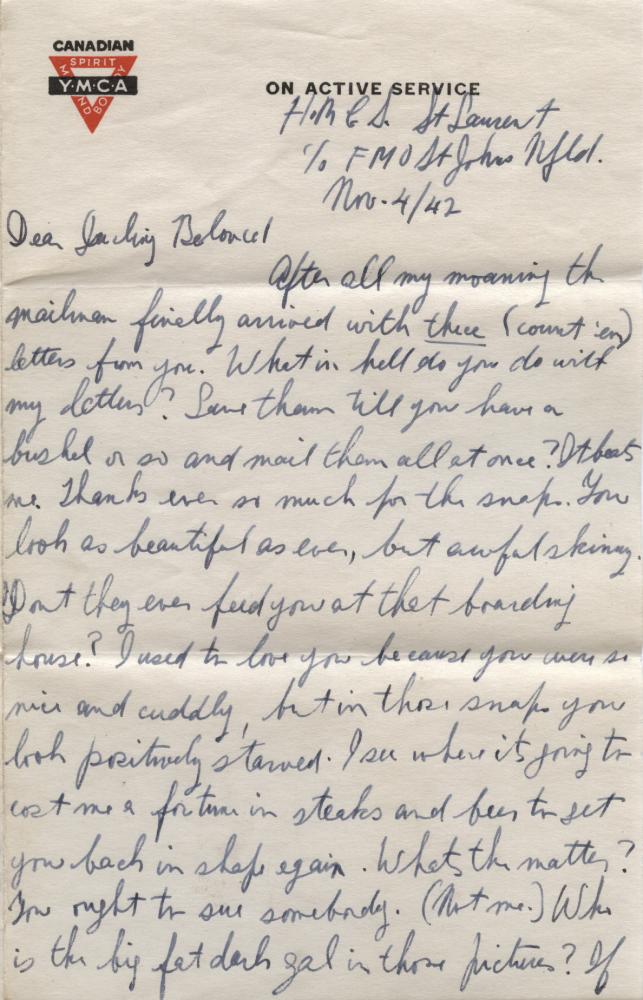 CANADIAN
SPIRIT
Y·M·C·A
MIND BODY
ON ACTIVE SERVICE
H.M.C.S. St Laurent
℅ FMO St Johns Nfld.
Nov. 4/42
Dear Darling Beloved
After all my moaning the
mailman finally arrived with three (count 'em)
letters from you. What in hell do you do with
my letters? Save them till you have a
bushel or so and mail them all at once? It beats
me. Thanks ever so much for the snaps. You
look as beautiful as ever, but awful skinny.
Dont they ever feed you at that boarding
house? I used to love you because you were so
nice and cuddly, but in those snaps you
look positively starved. I see where its going to
cost me a fortune in steaks and beer to get
you back in shape again. Whats the matter?
You ought to sue somebody. (Not me.) Who
is the big fat dark gal in those pictures? If